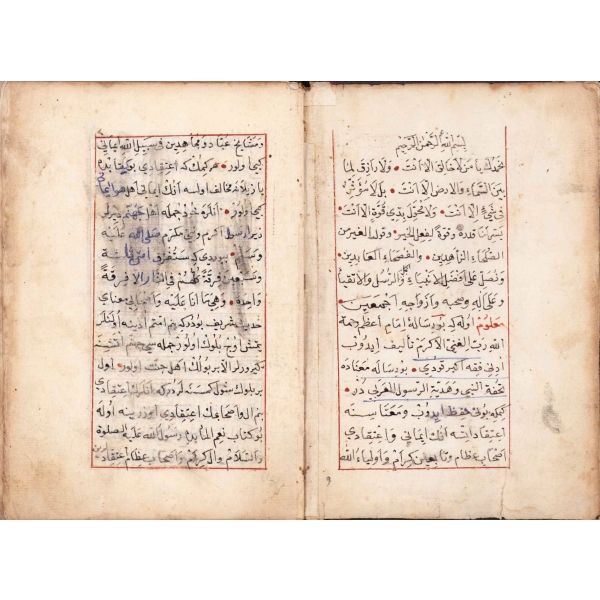 بسم الله الرحمن الرحيم
نحمدك يا من لا خالق الا انت ولا رازق لما
بين السماء والارض الا انت بل لا مؤثر
في شيء الا انت ولا محول بذي قوة الا انت
قدرة وقوة لفعل الخير وقول الخير من
الصلحاء الزاهدين والفصحاء العابدين
ونصلي على افضل الانبياء والرسل والاتقياء
وعلى اله وصحبه وازواجه اجمعين
معلوم اوله كه بو رساله امام اعظم رحمة
الله رب الغني الاكرم تأليف ايدوب
ادني فقه اكبر قودي بو رساله معناده
تحفة النبي وهدية الرسول العربي در
كمكه بوني حفظ ايدوب ومعنا سنه
اعتقاد ايته انك ايماني واعتقادي
اصحاب عظام وتابعين كرام واولياء الله
ومشايخ عباد ومجاهدين في سبيل الله ايماني
كبي اولور هر كمك كه اعتقادي بو كتابده
يازيلانه مخالف اولسه انك ايماني اهل هوا ايماني
كبي اولور انلره خود جمله اهل جهنم ديرلر
زيرا رسول اكرم ونبي مكرم صلى الله عليه
وسلم بيوردي كه ستفرق امتي ثلاثا
وسبعين فرقة كلهم في النار الا فرقة
واحدة وهي ما انا عليه واصحابي معناي
حديث شريف بودركه بنم امتم
يتمش اوچ بلوك اولور جمله سي جهنم
كيررلر الا بر بلوك اهل جنت اولور اول
بر بلوك شول كمسنه لردركه انلرك اعتقادي
بنم واصحابمك اعتقادي اوزرينه اوله
بو كتاب رسول الله عليه الصلوة
والسلام وال كرام واصحاب عظام اعتقادي